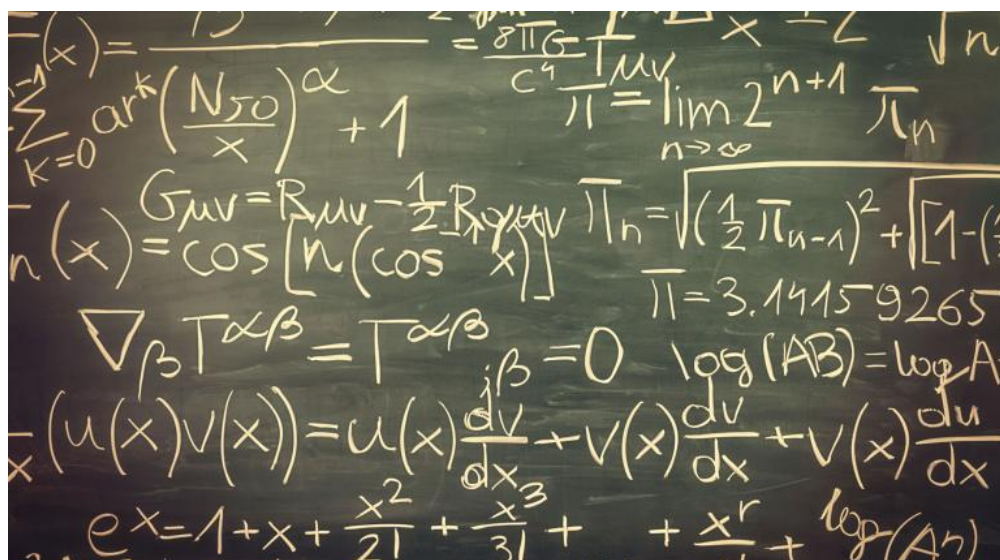 (x) =
= 8πG/c⁴ Tμν
x
√n
n-1 ∑ k=0 ar^k (N50/x)^α + 1
π = lim n→∞ 2^(n+1) πn
Gμν = Rμν - 1/2 R gμν
πn = √((1/2 πn-1)² + √[1-(
n(x) = cos [n(cos⁻¹ x)]
π = 3.1415 9265
∇β T^αβ = T^αβ ;β = 0
log(AB) = log A
(u(x)v(x)) = u(x) dv/dx + v(x) dv/dx + v(x) du/dx
e^x = 1 + x + x²/2! + x³/3! + + x^r
log(A^n)